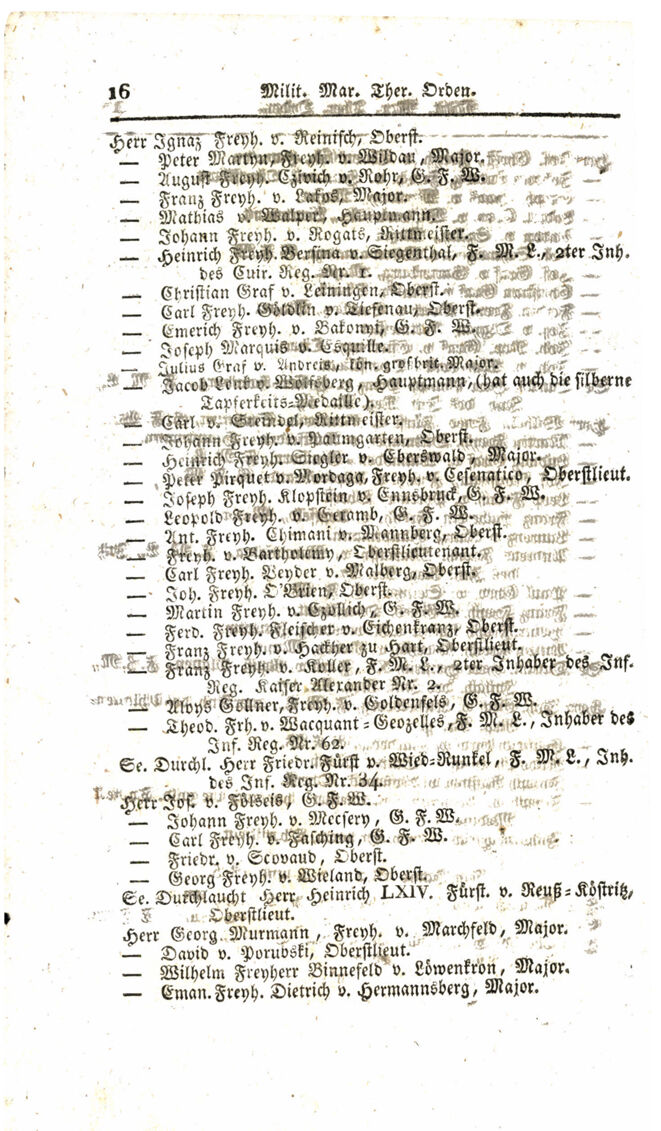 16 Milit. Mar. Ther. Orden.
Herr Ignaz Freyh. v. Reinisch, Oberst.
— Peter Martyn, Freyh. v. Wildau, Major.
— August Freyh. Czivich v. Rohr, G. F. W.
— Franz Freyh. v. Lakos, Major.
— Mathias v. Walper, Hauptmann.
— Johann Freyh. v. Rogats, Rittmeister.
— Heinrich Freyh. Bersina v. Siegenthal, F. M. L., 2ter Inh.
des Cuir. Reg. Nr. 1.
— Christian Graf v. Leiningen, Oberst.
— Carl Freyh. Göldlin v. Tiefenau, Oberst.
— Emerich Freyh. v. Bakonyi, G. F. W.
— Joseph Marquis v. Esquille.
— Julius Graf v. Andreis, kön. großbrit. Major.
— Jacob Lenk v. Wolfsberg, Hauptmann, (hat auch die silberne
Tapferkeits-Medaille).
— Carl v. Steindel, Rittmeister.
— Johann Freyh. v. Paumgarten, Oberst.
— Heinrich Freyh. Siegler v. Eberswald, Major.
— Peter Pirquet v. Mordaga, Freyh. v. Cesenatico, Oberstlieut.
— Joseph Freyh. Klopstein v. Ennsbruck, G. F. W.
— Leopold Freyh. v. Geramb, G. F. W.
— Ant. Freyh. Chimani v. Mannberg, Oberst.
— Freyh. v. Bartholemy, Oberstlieutenant.
— Carl Freyh. Veyder v. Malberg, Oberst.
— Joh. Freyh. O'Brien, Oberst.
— Martin Freyh. v. Czollich, G. F. W.
— Ferd. Freyh. Fleischer v. Eichenkranz, Oberst.
— Franz Freyh. v. Hackher zu Hart, Oberstlieut.
— Franz Freyh. v. Koller, F. M. L., 2ter Inhaber des Inf.
Reg. Kaiser Alexander Nr. 2.
— Aloys Gollner, Freyh. v. Goldenfels, G. F. W.
— Theod. Frh. v. Wacquant-Geozelles, F. M. L., Inhaber des
Inf. Reg. Nr. 62.
Se. Durchl. Herr Friedr. Fürst v. Wied-Runkel, F. M. L., Inh.
des Inf. Reg. Nr. 34.
Herr Jos. v. Fölseis, G. F. W.
— Johann Freyh. v. Mecsery, G. F. W.
— Carl Freyh. v. Fasching, G. F. W.
— Friedr. v. Scovaud, Oberst.
— Georg Freyh. v. Wieland, Oberst.
Se. Durchlaucht Herr Heinrich LXIV. Fürst. v. Reuß-Köstritz,
Oberstlieut.
Herr Georg Murmann, Freyh. v. Marchfeld, Major.
— David v. Porubski, Oberstlieut.
— Wilhelm Freyherr Binnefeld v. Löwenkron, Major.
— Eman. Freyh. Dietrich v. Hermannsberg, Major.